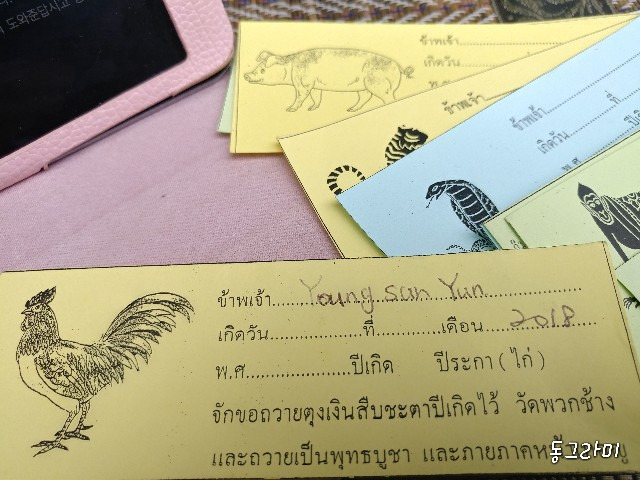 도와준답시고
ข้าพเจ้า
เกิดวัน
พ.ศ
ข้าพเจ้า
ข้าพเจ้า
ที่
เกิดวัน
พ.ศ
ข้าพเจ้า......Young san Yun......
เกิดวัน......ที่......เดือน......2018......
พ.ศ......ปีเกิด ปีระกา (ไก่)
จักขอถวายตุงเงินสืบชะตาปีเกิดไว้ วัดพวกช้าง
และถวายเป็นพุทธบูชา และภายภาค
동그라미